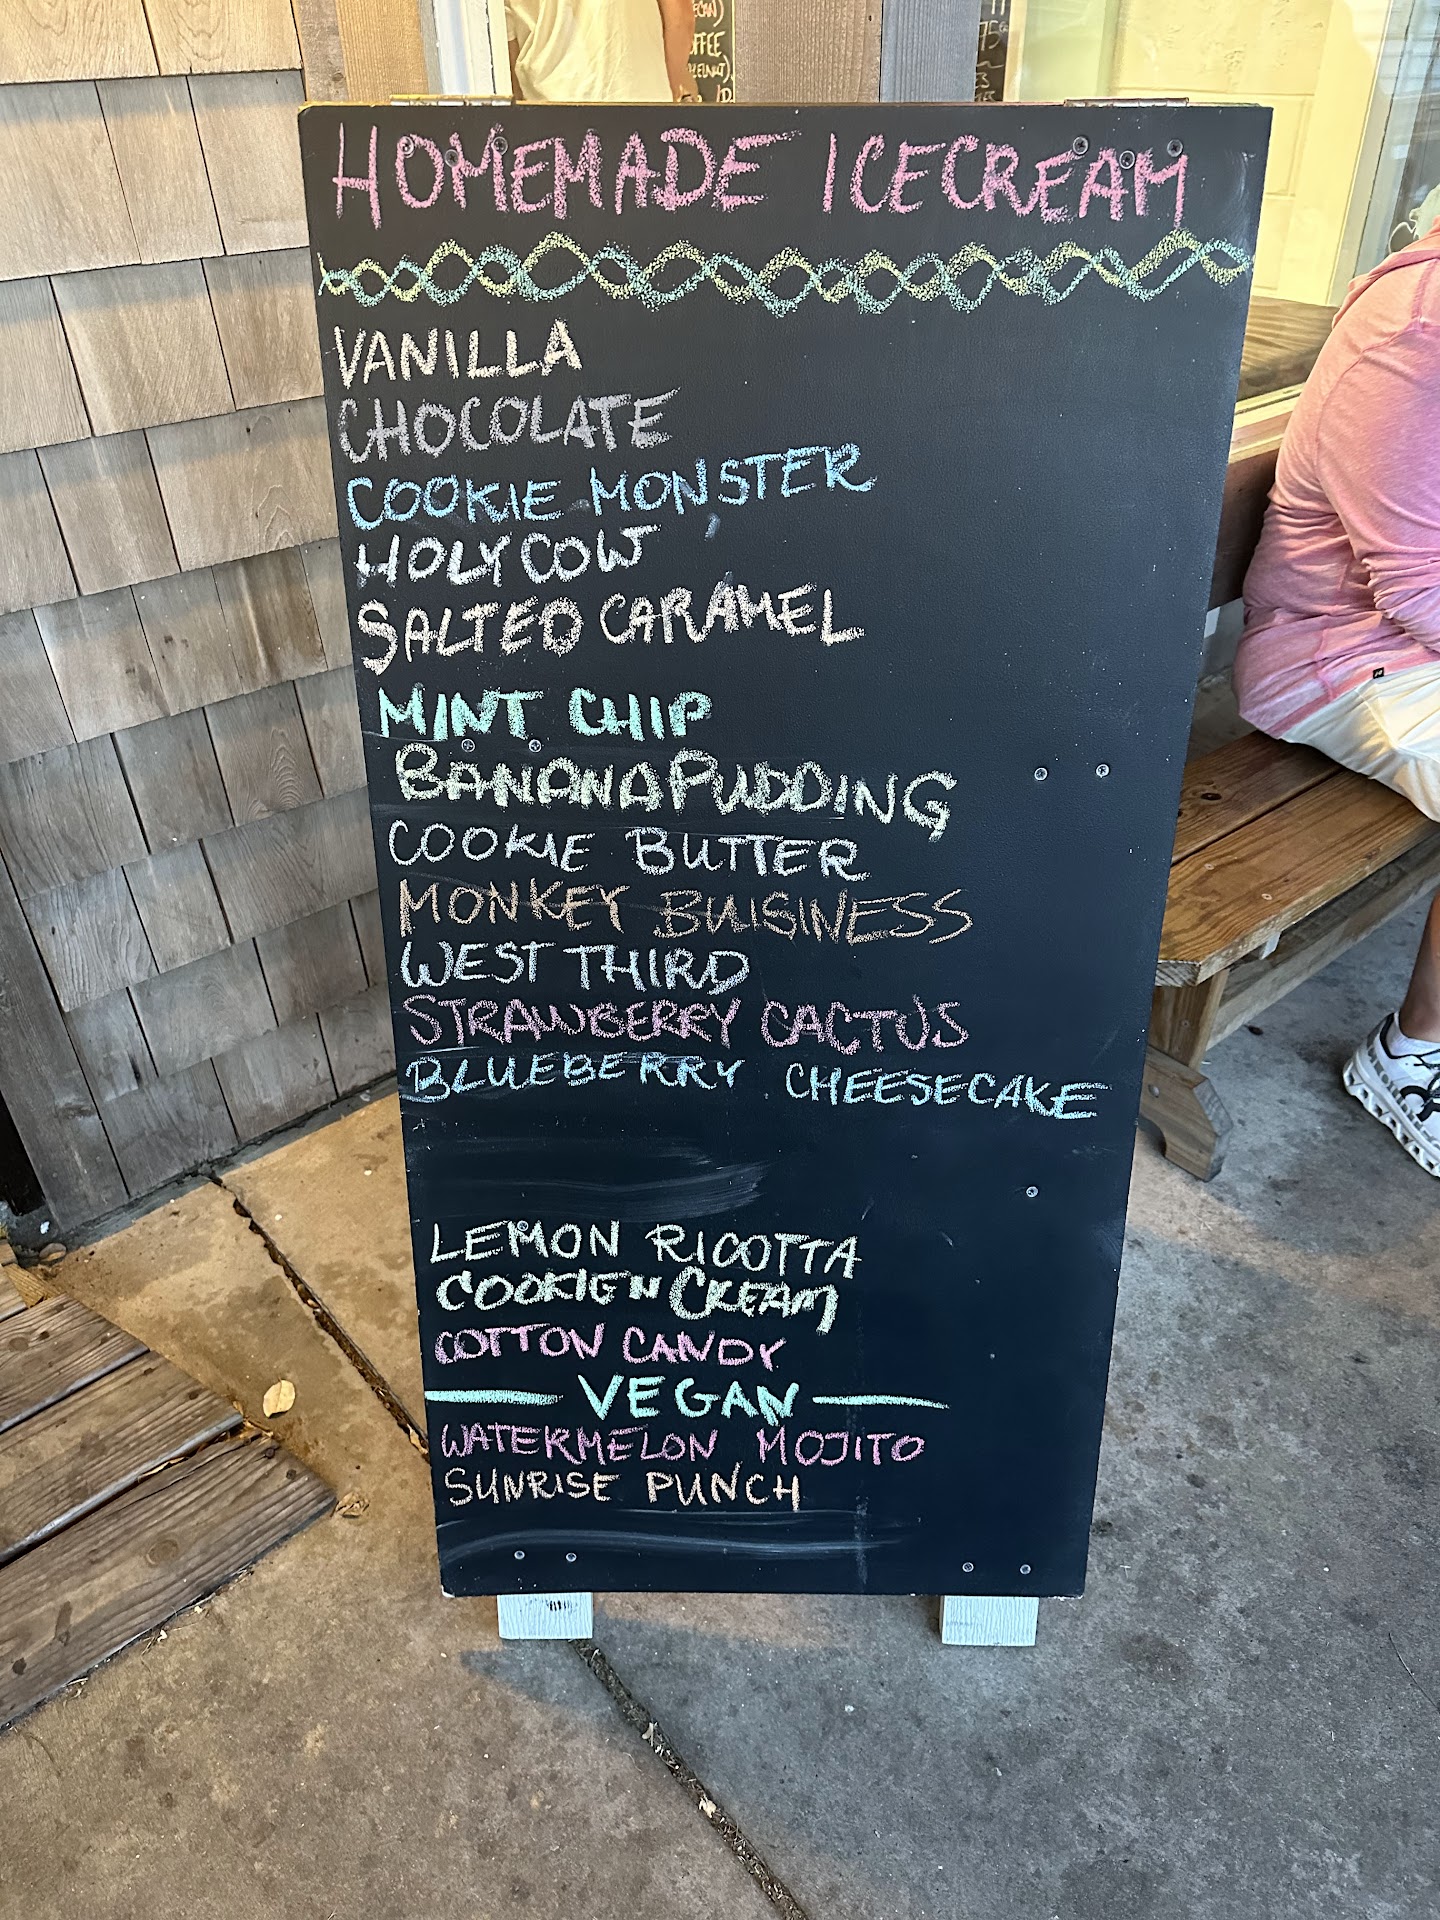 HOMEMADE ICECREAM
VANILLA
CHOCOLATE
COOKIE MONSTER
HOLY COW
SALTED CARAMEL
MINT CHIP
BANANA PUDDING
COOKIE BUTTER
MONKEY BUISINESS
WEST THIRD
STRAWBERRY CACTUS
BLUEBERRY CHEESECAKE
LEMON RICOTTA
COOKIE N CREAM
COTTON CANDY
VEGAN
WATERMELON MOJITO
SUNRISE PUNCH